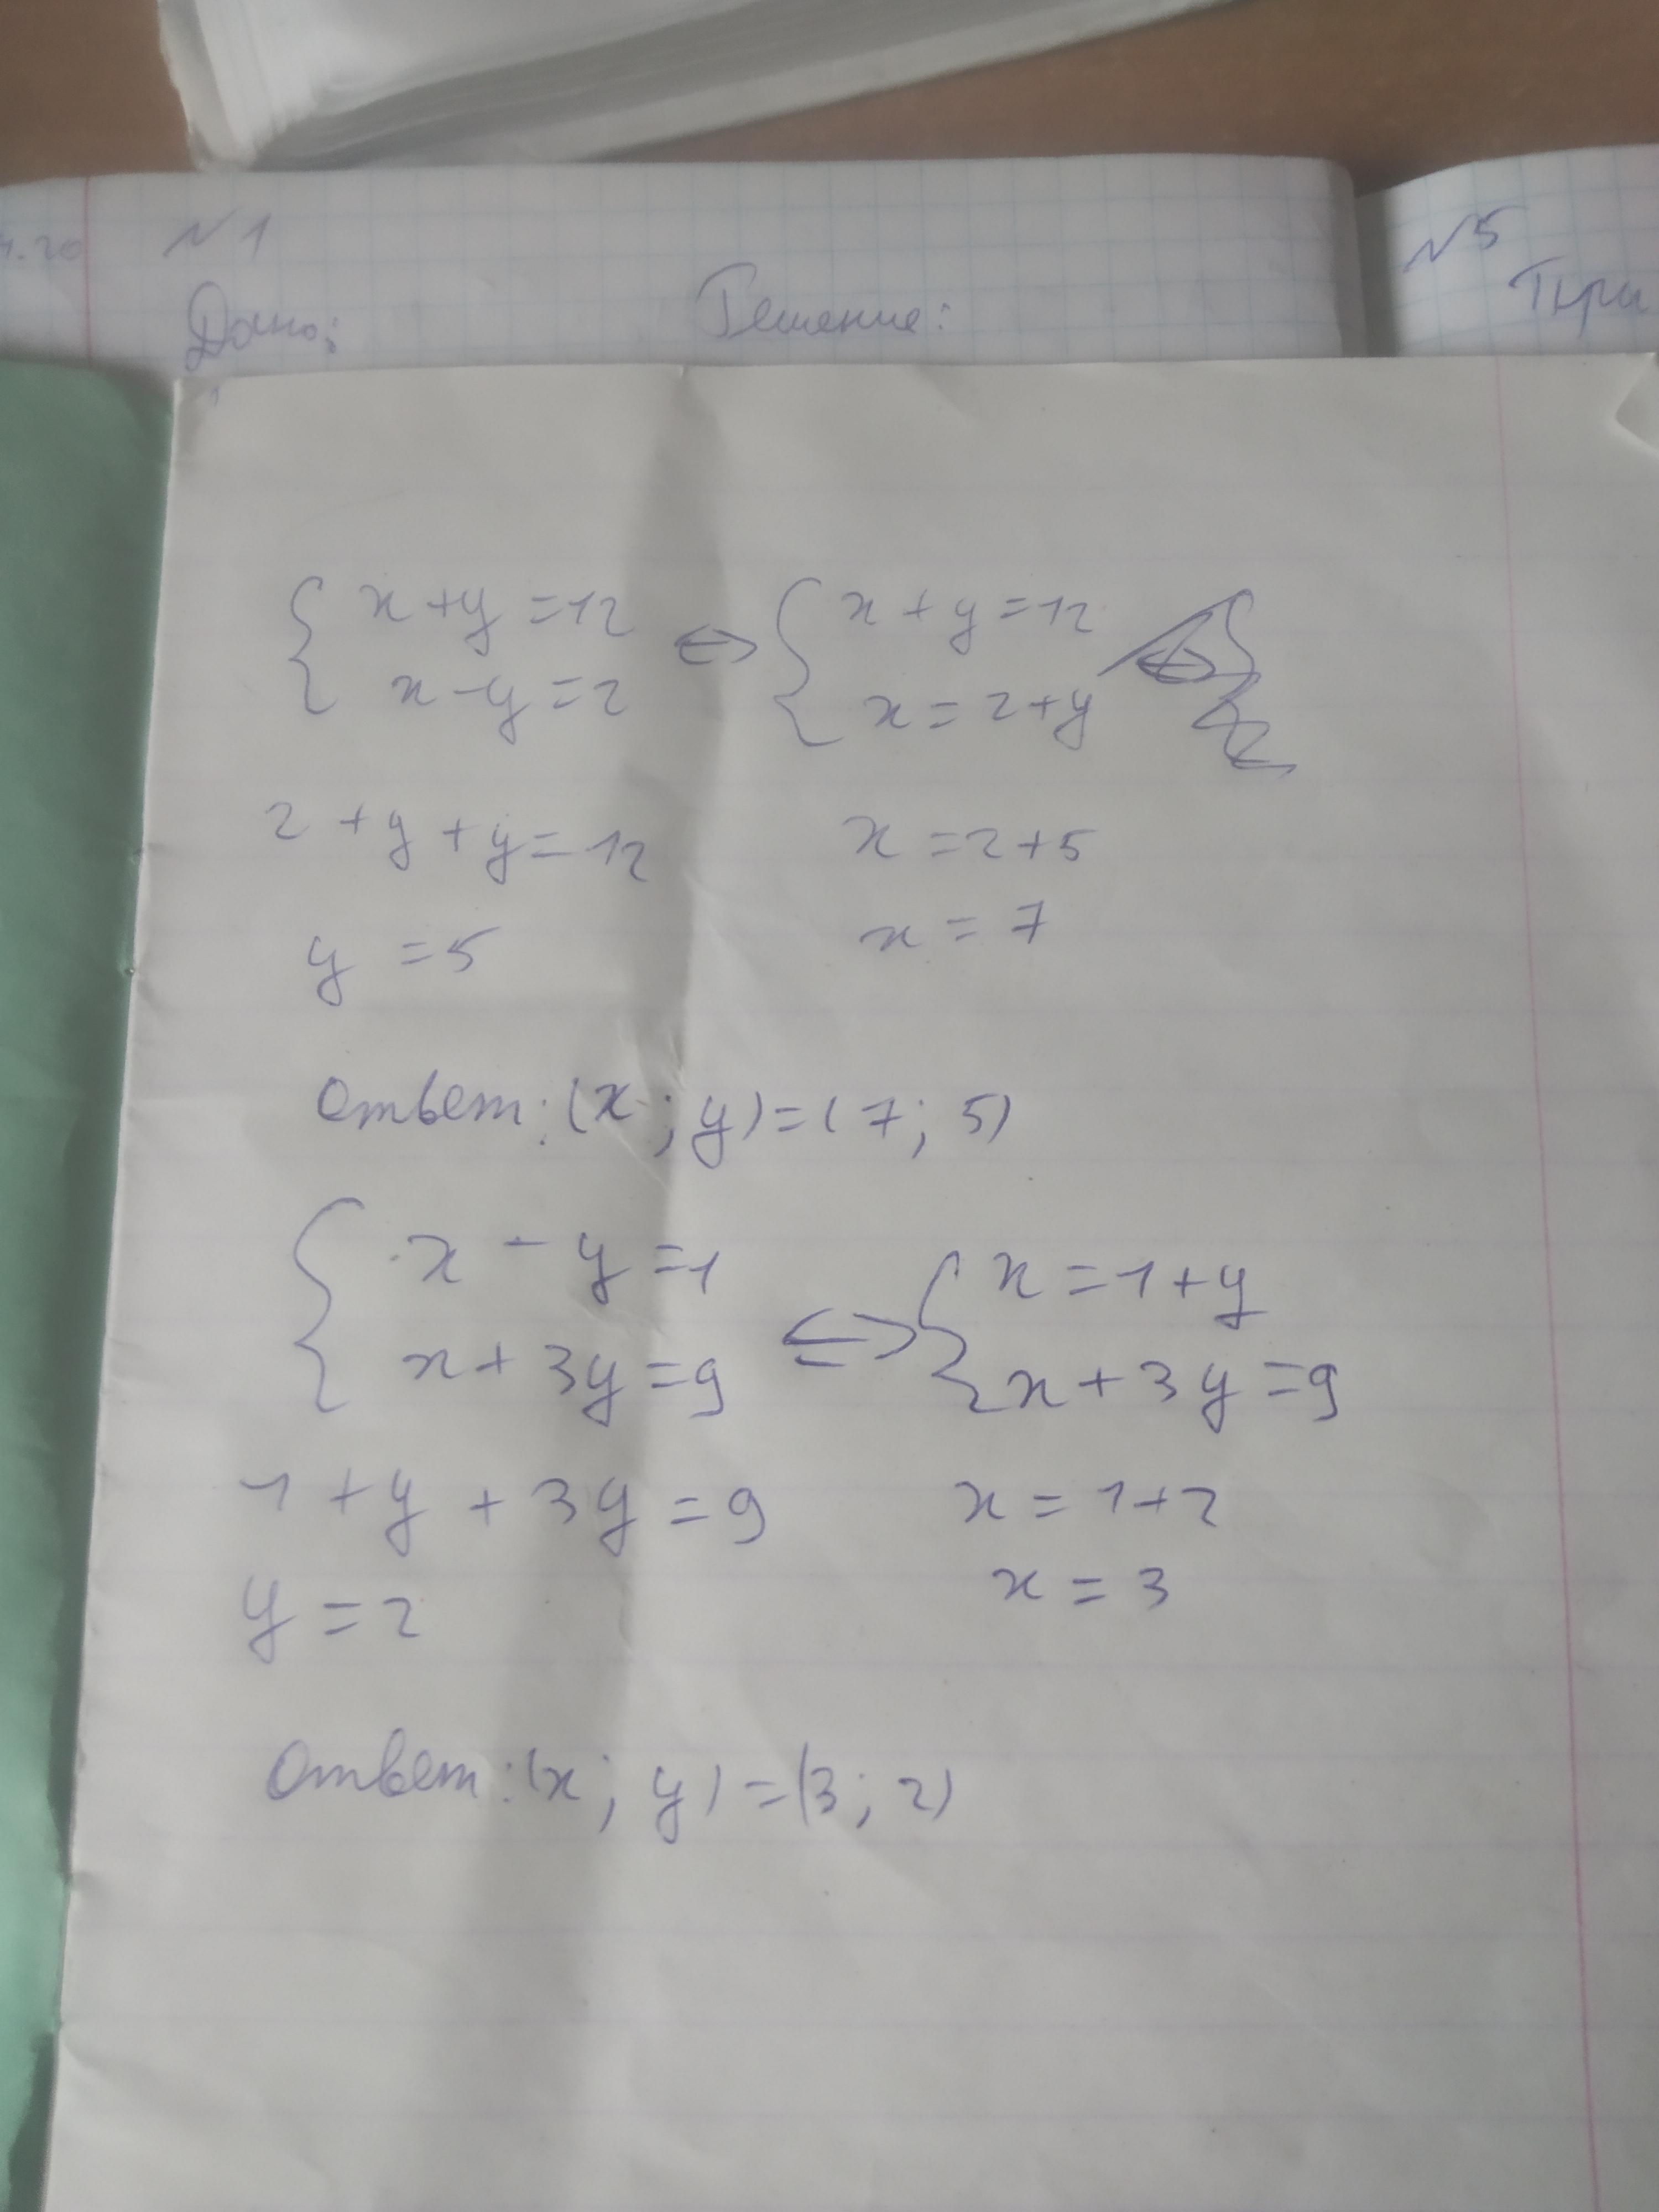 4.20
№1
№5
Дано:
Решение:
При
{ x + y = 12 <=> { x + y = 12
x - y = 2 x = 2 + y
2 + y + y = 12 x = 2 + 5
y = 5 x = 7
Ответ: (x; y) = (7; 5)
{ x - y = 1 <=> { x = 1 + y
x + 3y = 9 x + 3y = 9
1 + y + 3y = 9 x = 1 + 2
y = 2 x = 3
Ответ: (x; y) = (3; 2)